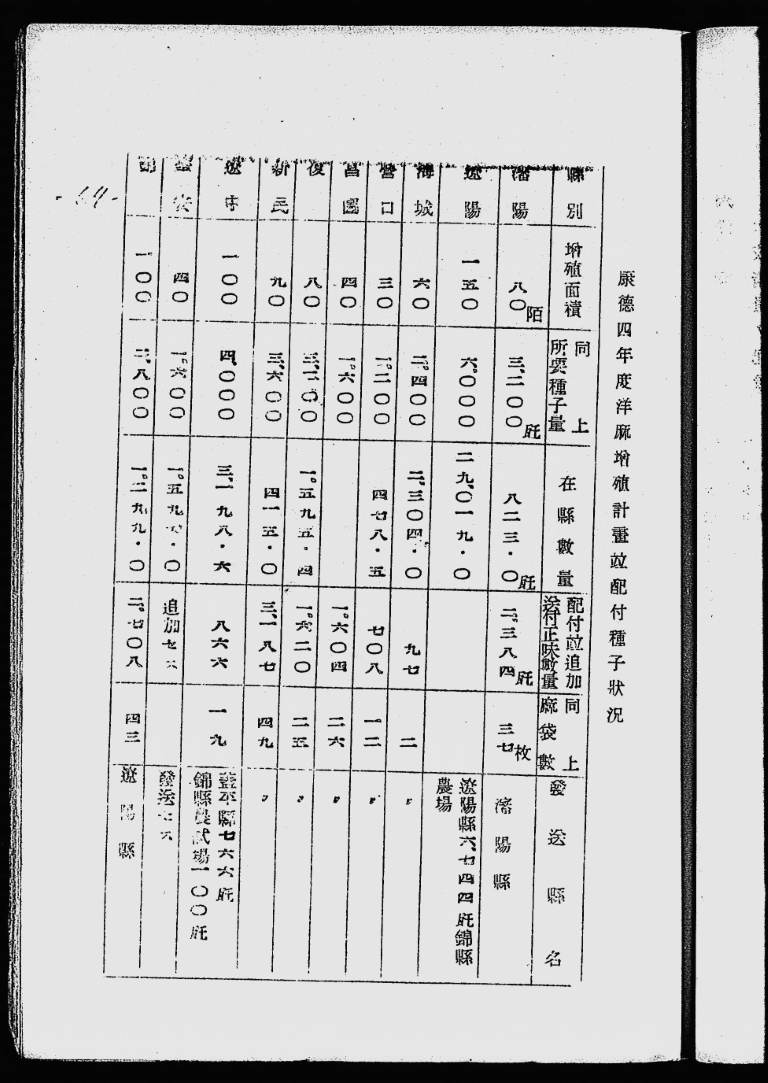 康德四年度洋麻增殖計畫竝配付種子狀況
縣別 增殖面積 同上所要種子量 在縣數量 配付竝追加送付正味數量 同上麻袋數 發送縣名
瀋陽 八〇陌 三、二〇〇瓩 八二三・〇瓩 二、三八四瓩 三七枚 瀋陽縣
遼陽 一五〇 六、〇〇〇 二九、〇一九・〇 遼陽縣六、七四四瓩錦縣農場
海城 六〇 二、四〇〇 二、三〇四・〇 九七 二 〃
營口 三〇 一、二〇〇 四七八・五 七〇八 一二 〃
昌圖 四〇 一、六〇〇 一、六〇四 二六 〃
復 八〇 三、二〇〇 一、五九五・四 一、六二〇 二五 〃
新民 九〇 三、六〇〇 四一五・〇 三、一八七 四九 〃
遼中 一〇〇 四、〇〇〇 三、一九八・六 八六六 一九 蓋平縣七六六瓩 錦縣農試場一〇〇瓩
安 四〇 一、六〇〇 一、五九七・〇 追加セス 發送セス
一〇〇 二、八〇〇 一、二九九・〇 二、七〇八 四三 遼陽縣